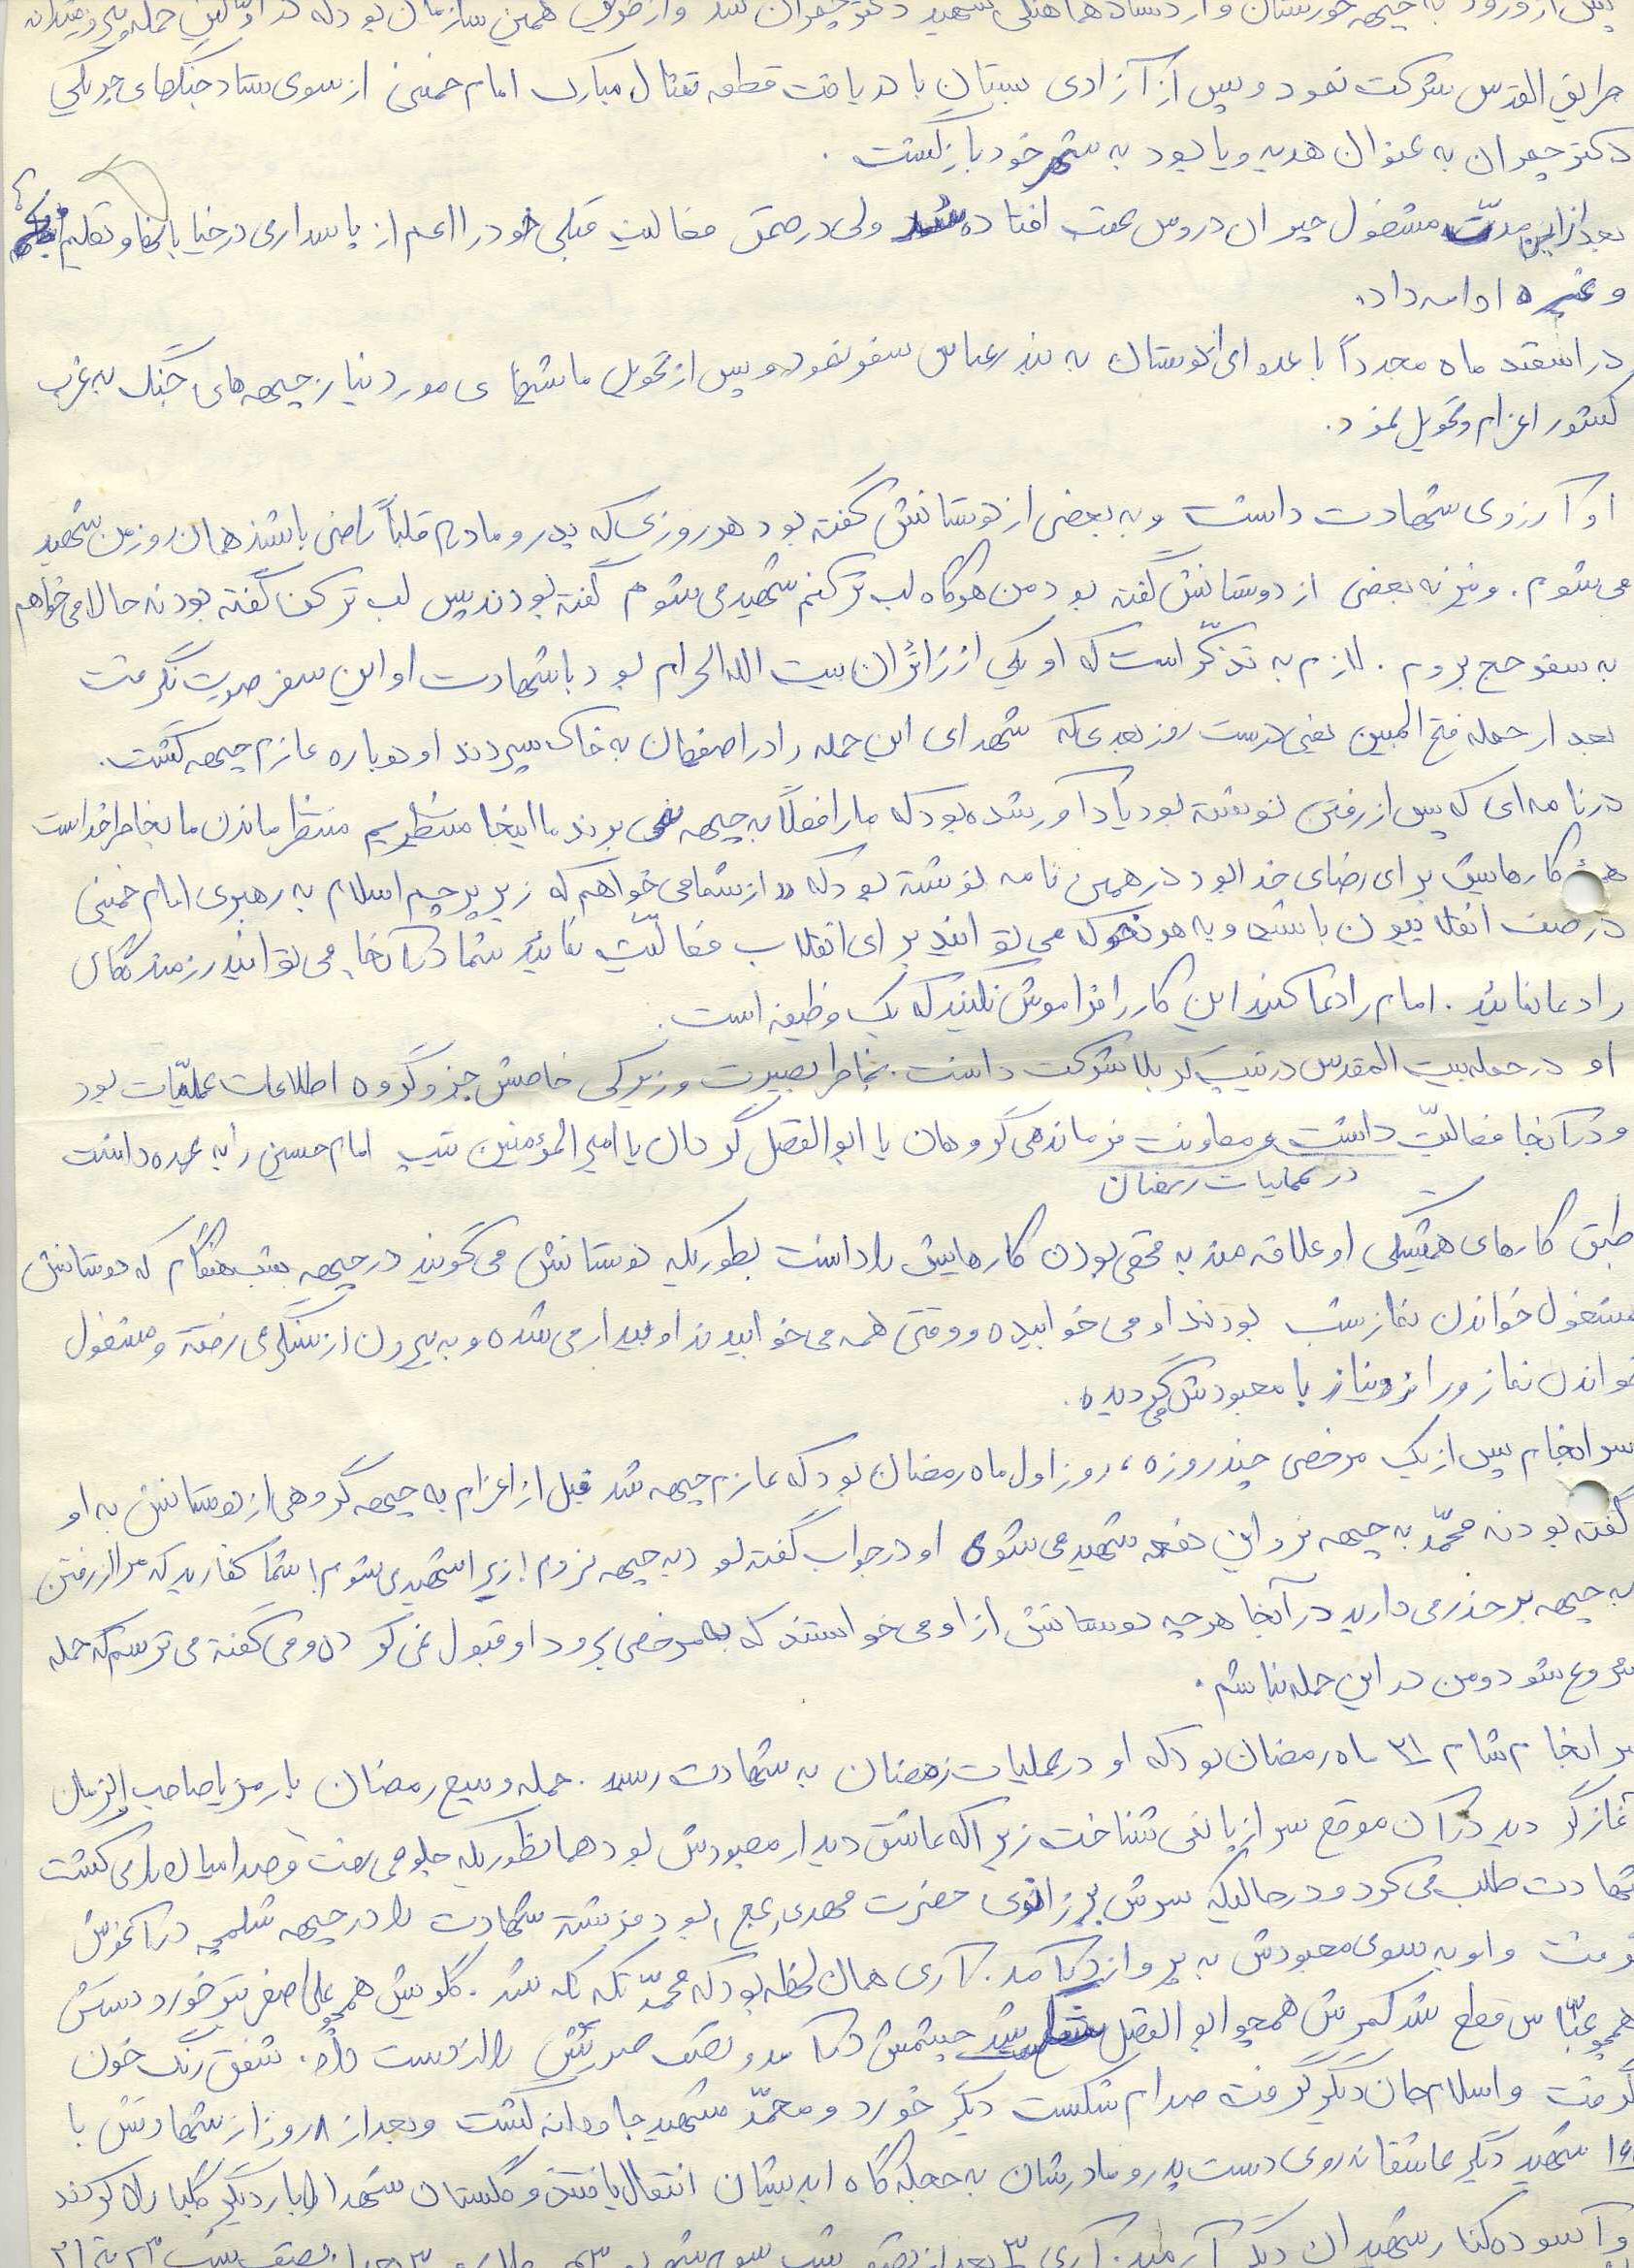 پس از ورود به جبهه خوزستان وارد ستاد هماهنگی شهید دکتر چمران شد و از طریق همین سازمان بود که در اولین حمله پیروزمندانه
طریق القدس شرکت نمود و پس از آزادی بستان با دریافت قطعه تمثال مبارک امام خمینی از سوی ستاد جنگهای چریکی
دکتر چمران به عنوان هدیه و یا بود به شهر خود بازگشت .
بعد از این مدت مشغول جبران دروس عقب افتاده شد ولی در ضمن فعالیت قبلی خود را اعم از پاسداری در خیابانها و تعلیم
و غیره ادامه داد.
در اسفند ماه مجدداً با عده ای از دوستان به بندرعباس سفر نمود و پس از تحویل ماشینهای مورد نیاز جبهه های جنگ به غرب
کشور اعزام و تحویل نمود.
او آرزوی شهادت داشت و به بعضی از دوستانش گفته بود هر روزی که پدر و مادرم قلباً راضی باشند همان روز من شهید
می شوم . و نیز به بعضی از دوستانش گفته بود من هرگاه لب تر کنم شهید می شوم گفته بودند پس لب تر کن گفته بود نه حالا می خواهم
به سفر حج بروم . لازم به تذکّر است که او یکی از زائران بیت الله الحرام بود با شهادت او این سفر صورت نگرفت
بعد از حمله فتح المبین یعنی درست روز بعدی که شهدای این حمله را در اصفهان به خاک سپردند او دوباره عازم جبهه گشت .
در نامه ای که پس از رفتن نوشته بود یادآور شده بود که ما را فعلاً به جبهه نمی بردند ما اینجا منتظریم منتظر ماندن ما بخاطر خداست
همهٔ کارهایش برای رضای خدا بود در همین نامه نوشته بود که «از شما می خواهم که زیر پرچم اسلام به رهبری امام خمینی
در صف انقلابیون باشید و به هر نحو که می توانید برای انقلاب فعالیّت نمائید شما در آنجا می توانید رزمندگان
را دعا نمائید . امام را دعا کنید این کار را فراموش نکنید که یک وظیفه است .
او در حمله بیت المقدس در تیپ کربلا شرکت داشت . بخاطر بصیرت و زیرکی خاصش جزو گروه اطلاعات عملیّات بود
و در آنجا فعالیّت داشت و معاونت فرماندهی گروهان یا ابوالفضل گردان یا امیرالمؤمنین تیپ امام حسین را به عهده داشت
در عملیات رمضان
طبق کارهای همیشگی او علاقه مند به مخفی بودن کارهایش را داشت بطوریکه دوستانش می گویند در جبهه شب هنگام که دوستانش
مشغول خواندن نماز شب بودند او می خوابیده و وقتی همه می خوابیدند او بیدار می شده و به بیرون از سنگر می رفته و مشغول
خواندن نماز و راز و نیاز با معبودش می گردیده .
سرانجام پس از یک مرخصی چند روزه ، روز اول ماه رمضان بود که عازم جبهه شد قبل از اعزام به جبهه گروهی از دوستانش به او
گفته بودند محمّد به جبهه نرو این دفعه شهید می شوی او در جواب گفته بود به جبهه نروم ! زیرا شهید می شوم ! شما کفارید که مرا از رفتن
به جبهه بر حذر می دارید در آنجا هر چه دوستانش از او می خواستند که به مرخصی برود او قبول نمی کرد و می گفته می ترسم که حمله
شروع شود و من در این حمله نباشم .
سرانجام شام ۲۱ ماه رمضان بود که او در عملیات رمضان به شهادت رسد . حمله وسیع رمضان با رمز یا صاحب الزمان
آغاز گردید در آن موقع سر از پا نمی شناخت زیرا که عاشق دیدار معبودش بود همانطوریکه جلو می رفت و صدامیان را می کشت
شهادت طلب می کرد و در حالیکه سرش بر زانوی حضرت مهدی (عج) بود فرشته شهادت را در جبهه شلمچه در آغوش
گرفت و او به سوی معبودش به پرواز درآمد . آری همان لحظه بود که محمّد تکه تکه شد . گلویش همچو علی اصغر تیر خورد دستش
همچو عبّاس قطع شد کمرش همچو ابوالفضل شد چشمش درآمد و نصف صورتش را از دست داد . شفق رنگ خون
گرفت و اسلام جان دیگر گرفت صدام شکست دیگر خورد و محمّد شهید جاودانه گشت و بعد از ۸ روز از شهادتش با
شهید دیگر عاشقانه روی دست پدر و مادرشان به حجله گاه ابدیشان انتقال یافتند و گلستان شهدا را بار دیگر گلباران کردند
و آسوده کنار شهیدان دیگر آرمید . آری ۳ بعد از نصف شب